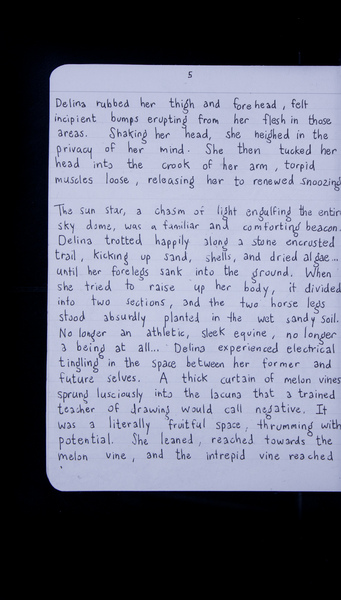 5
Delina rubbed her thigh and forehead, felt
incipient bumps erupting from her flesh in those
areas. Shaking her head, she neighed in the
privacy of her mind. She then tucked her
head into the crook of her arm, torpid
muscles loose, releasing her to renewed snoozing
The sun star, a chasm of light engulfing the entire
sky dome, was a familiar and comforting beacon.
Delina trotted happily along a stone encrusted
trail, kicking up sand, shells, and dried algae...
until her forelegs sank into the ground. When
she tried to raise up her body, it divided
into two sections, and the two horse legs
stood absurdly planted in the wet sandy soil.
No longer an athletic, sleek equine, no longer
a being at all... Delina experienced electrical
tingling in the space between her former and
future selves. A thick curtain of melon vines
sprung lusciously into the lacuna that a trained
teacher of drawing would call negative. It
was a literally fruitful space, thrumming with
potential. She leaned, reached towards the
melon vine, and the intrepid vine reached